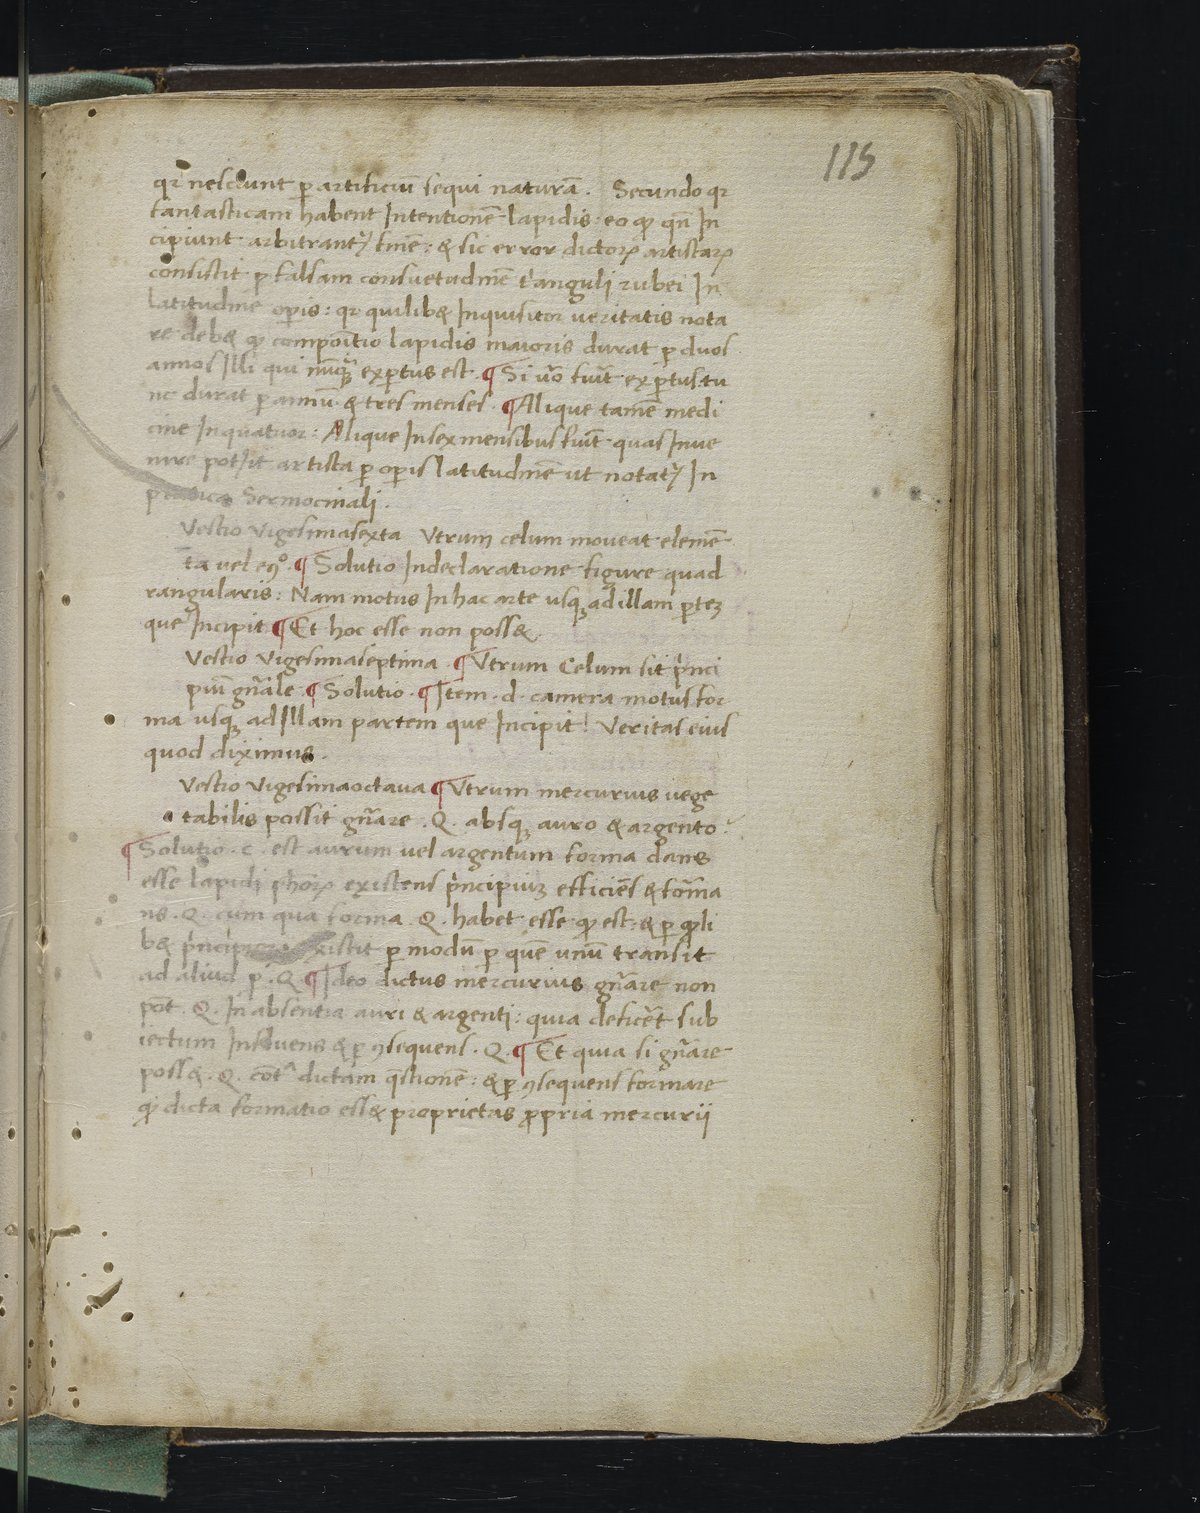 115
qr nesciunt p artificiū sequi naturā. Secundo qr
fantasticam habent Intentionē lapidis: eo qꝫ qn̄ In
cipiunt arbitrantꝭ finē: & sic error dictoꝝ artistaꝝ
consistit p falsam consuetudinē t'anguli rubei In
latitudine operis: qr quilib& Inquisitor ueritatis nota
re deb& qꝫ compoītio lapidis maioris durat p duos
annos Illi qui nūqꝫ exptus est ¶ Si uō fuīt exptus tu
nc durat p annū & tres menses. ¶ Alique tamē medi
cine Inquatuor: Alique Insex mensibus fuīt quas Inue
nire pot'it artista p opis latitudinē ut notatꝭ In
practica Sermocinali.
Vestio Vigesimasexta Vtrum celum moueat elemē
ta uel eꝯº. ¶ Solutio Indeclaratione figure quad
rangularis: Nam motus In hac arte usqꝫ ad illam ptem
que Incipit ¶ Et hoc esse non poss&.
Vestio Vigesimaseptima. ¶ Vtrum Celum sit p'nci
piū gn̄ale ¶ Solutio. ¶ Item. d. camera motus for
ma usqꝫ ad Illam partem que Incipit! Veritas eius
quod diximus.
Vestio Vigesimaoctaua ¶ Vtrum mercurius uege
tabilis possit gn̄are. Q. absqꝫ auro & argento?
¶ Solutio. c. est aurum uel argentum forma dans
esse lapidi ph̄oꝝ existens p'ncipiuꝫ efficiēs & formā
ns. Q. cum qua forma. Q. habet esse qꝫ est: & p qꝫli
b& p'ncipioꝝ p modū p quē unū transit
ad aliud p. Q ¶ Ideo dictus mercurius gn̄are non
pōt. Q. In absentia auri & argenti: quia deficēt sub
iectum Influens & p ꝯsequens. Q. ¶ Et quia si gn̄are
poss&. Q. cōtᵃ dictam q̄stionē: & p ꝯsequens formare
qꝫ dicta formatio ess& proprietas ꝓpria mercurii